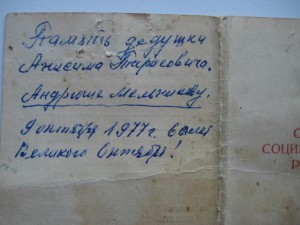 Память дедушки
Анисима Тарасовича.
Андрюше Мельникову.
9 октября 1977 г. в честь
Великого Октября!
С
СОЦИА
Р